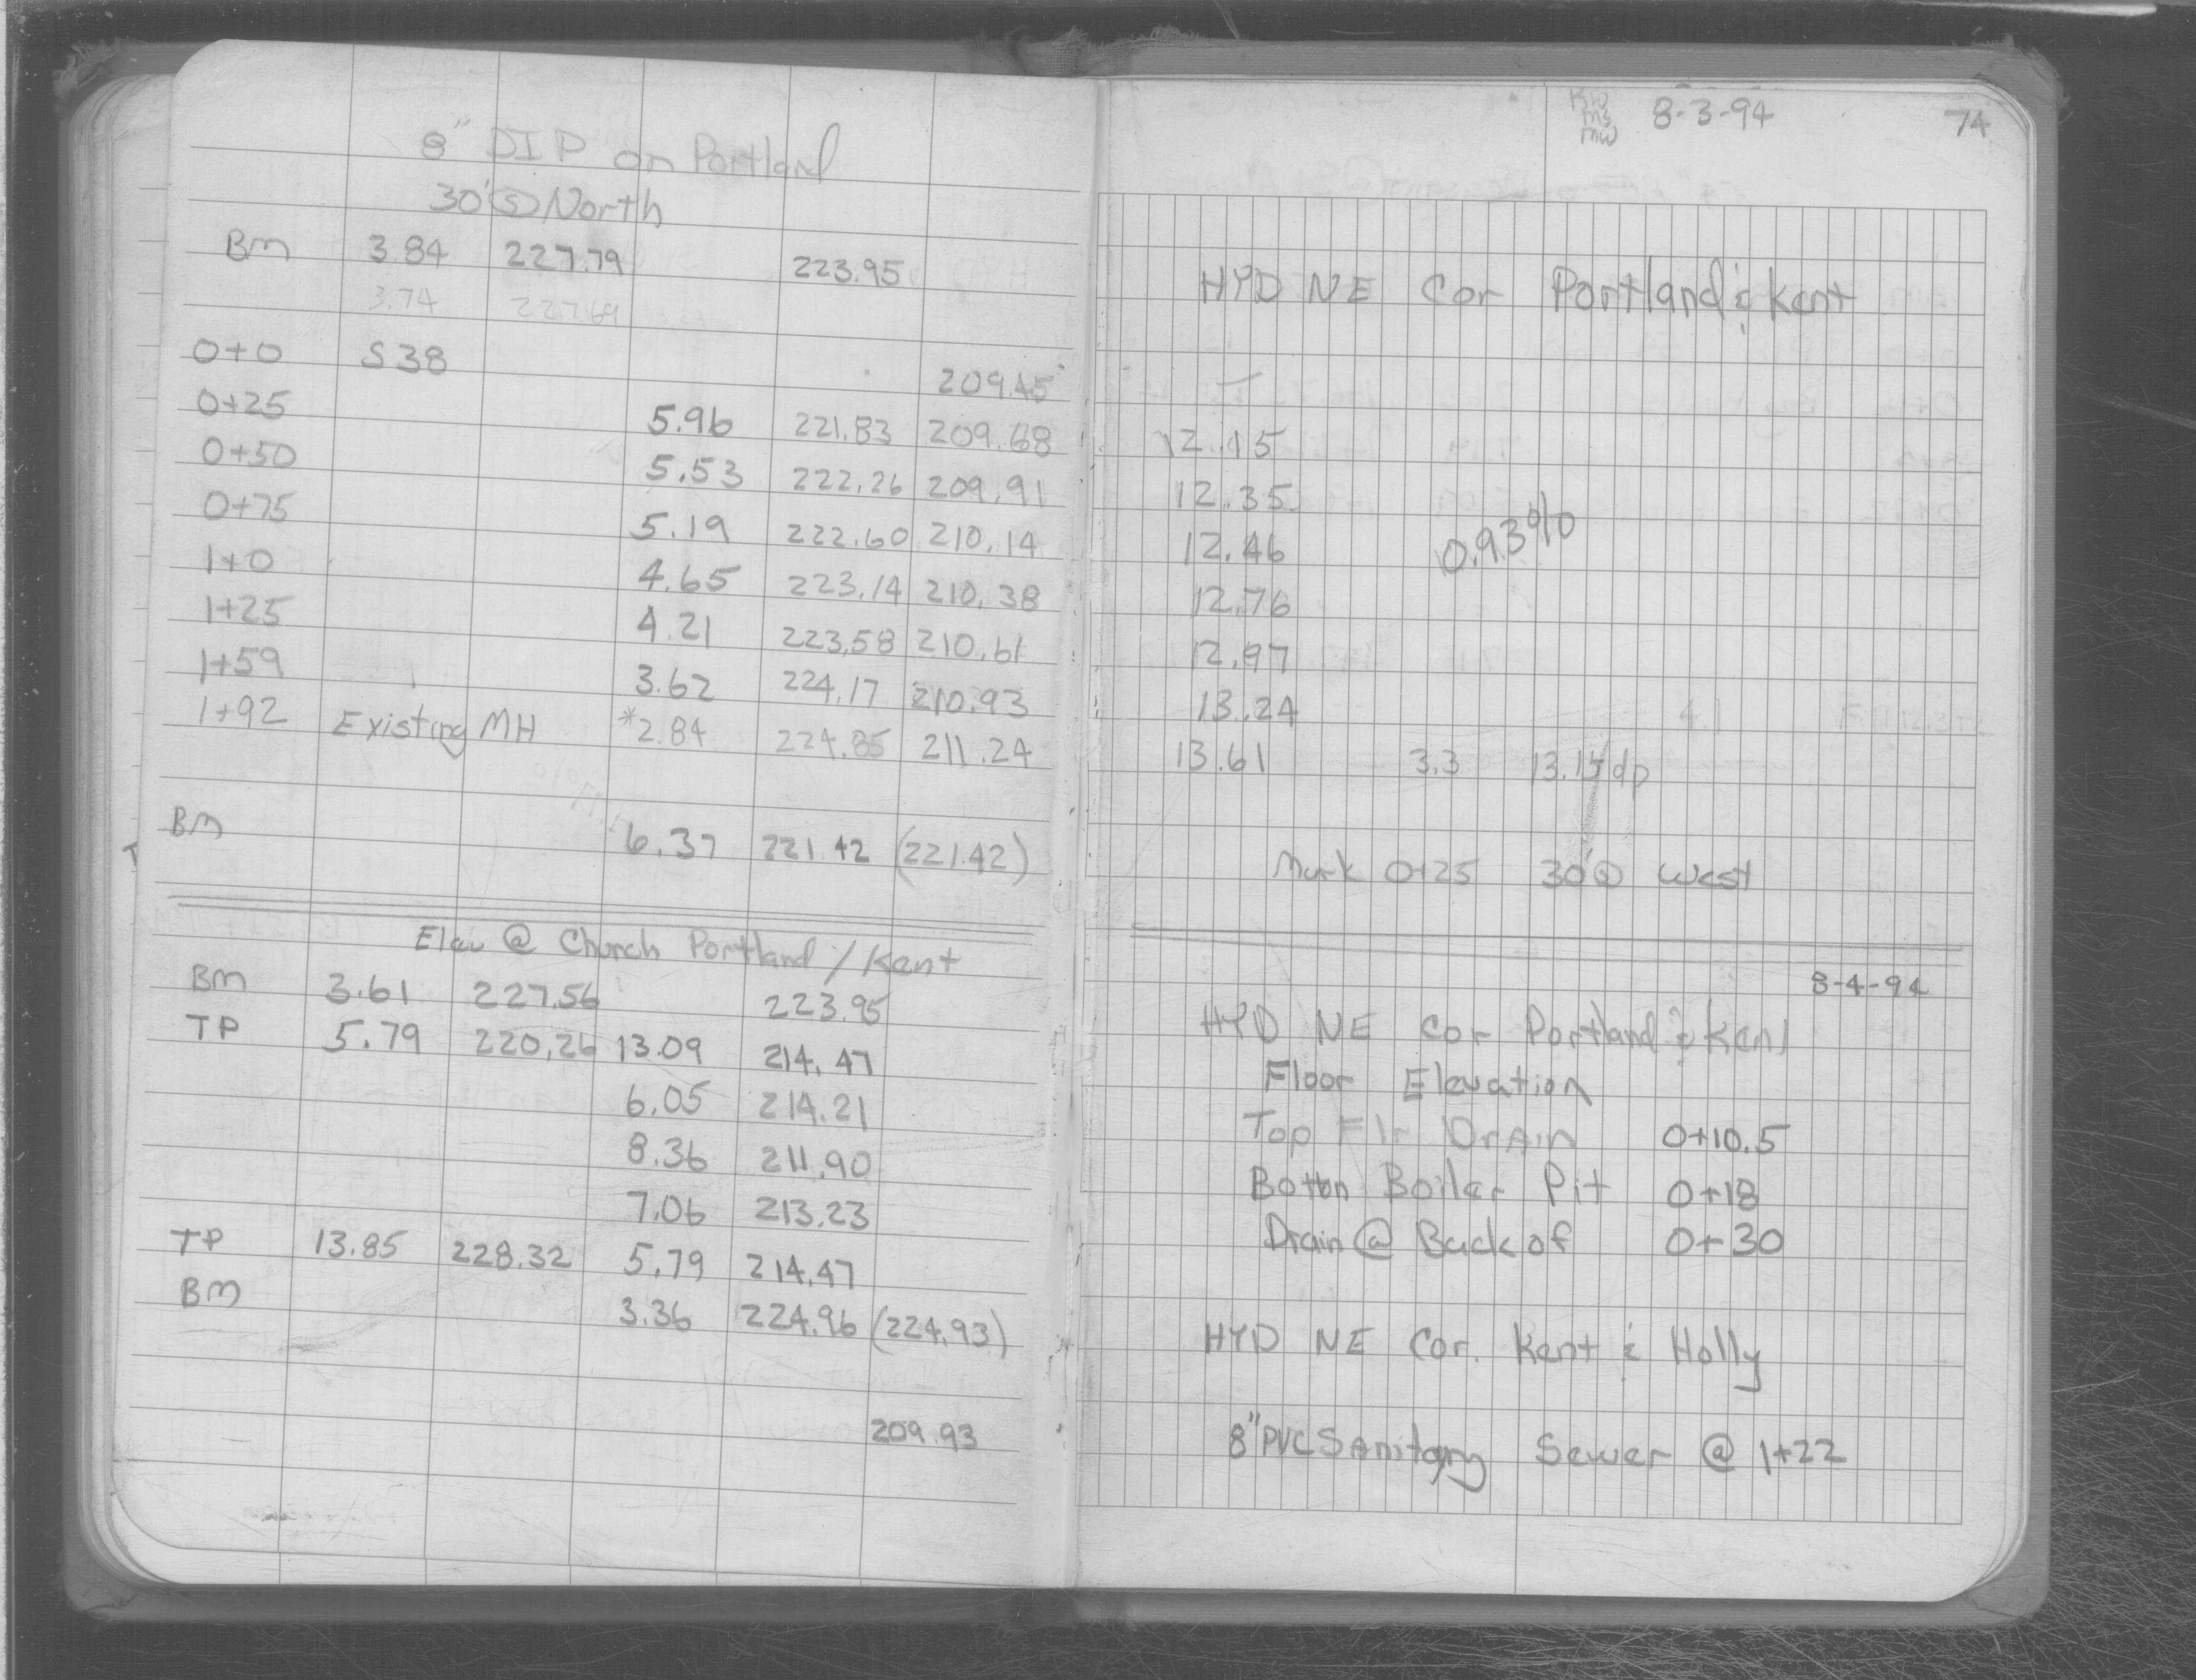 8" DIP on Portland
30' Ⓢ North
BM 3.84 227.79 223.95
3.74 227.69
0+0 S38 209.45
0+25 5.96 221.83 209.68
0+50 5.53 222.26 209.91
0+75 5.19 222.60 210.14
1+0 4.65 223.14 210.38
1+25 4.21 223.58 210.61
1+59 3.62 224.17 210.93
1+92 Existing MH *2.84 224.85 211.24
BM 6.37 221.42 (221.42)
Elev @ Church Portland / Kent
BM 3.61 227.56 223.95
TP 5.79 220.26 13.09 214.47
6.05 214.21
8.36 211.90
7.06 213.23
TP 13.85 228.32 5.79 214.47
BM 3.36 224.96 (224.93)
209.93
KW
MS
MW
8-3-94 74
HYD NE Cor Portland & Kent
12.15
12.35
12.46 0.93%
12.76
12.97
13.24
13.61 3.3 13.15 dp
Mark 0+25 30' West
8-4-94
HYD NE Cor Portland & Kent
Floor Elevation
Top Flr Drain 0+10.5
Botton Boiler Pit 0+18
Drain @ Back of 0+30
HYD NE Cor. Kent & Holly
8" PVC Sanitary Sewer @ 1+22